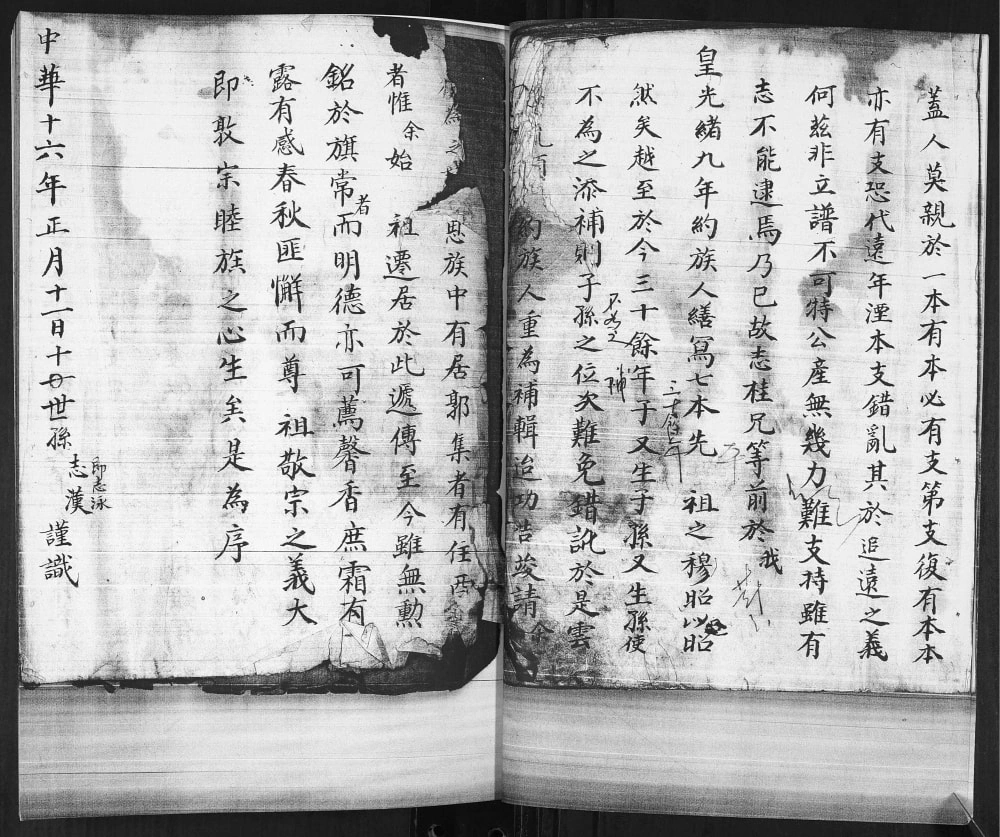 蓋人莫親於一本有本必有支第支復有本本
亦有支恐代遠年湮本支錯亂其於追遠之義
何茲非立譜不可特公產無幾力難支持雖有
志不能逮焉乃已故志桂兄等前於我
皇光緒九年約族人繕寫七本先 祖之穆昭以昭
然矣越至於今三十餘年子又生子孫又生孫使
不為之添補則子孫之位次難免錯訛於是雲
約族人重為補輯迨功告竣請余
為之
思族中有居郭集者有任
者惟余始 祖遷居於此遞傳至今雖無勳
銘於旗常者而明德亦可薦馨香庶霜有
露有感春秋匪懈而尊 祖敬宗之義大
即敦宗睦族之心生矣是為序
中華十六年正月十一日十世孫志漢即志泳謹識